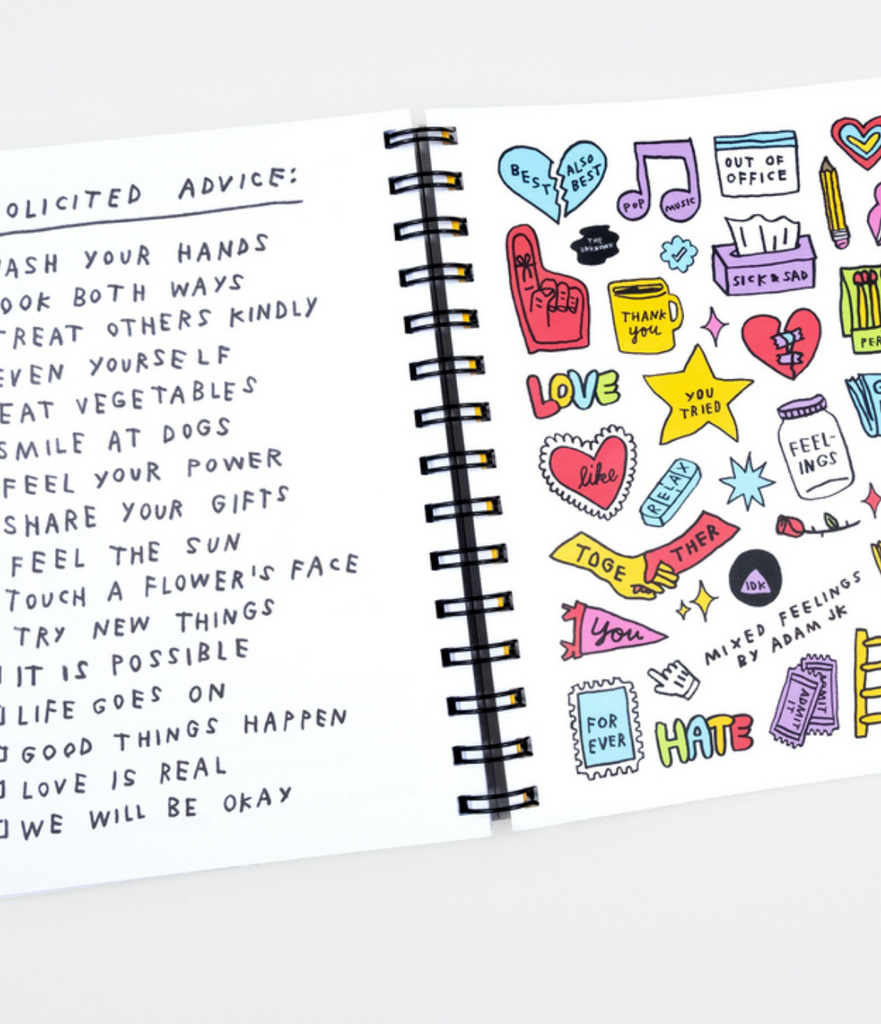 OLICITED ADVICE:
WASH YOUR HANDS
OOK BOTH WAYS
TREAT OTHERS KINDLY
EVEN YOURSELF
EAT VEGETABLES
SMILE AT DOGS
FEEL YOUR POWER
SHARE YOUR GIFTS
FEEL THE SUN
TOUCH A FLOWER'S FACE
TRY NEW THINGS
IT IS POSSIBLE
LIFE GOES ON
GOOD THINGS HAPPEN
LOVE IS REAL
WE WILL BE OKAY
BEST
ALSO
BEST
POP
MUSIC
OUT OF
OFFICE
THE
UNKNOWN
SICK & SAD
THANK
you
PER
LOVE
YOU
TRIED
FEEL-
INGS
like
RELAX
TOGE
THER
IDK
You
MIXED FEELINGS
BY ADAM JK
FOR
EVER
HATE
ADMIT
IT
ADMIT